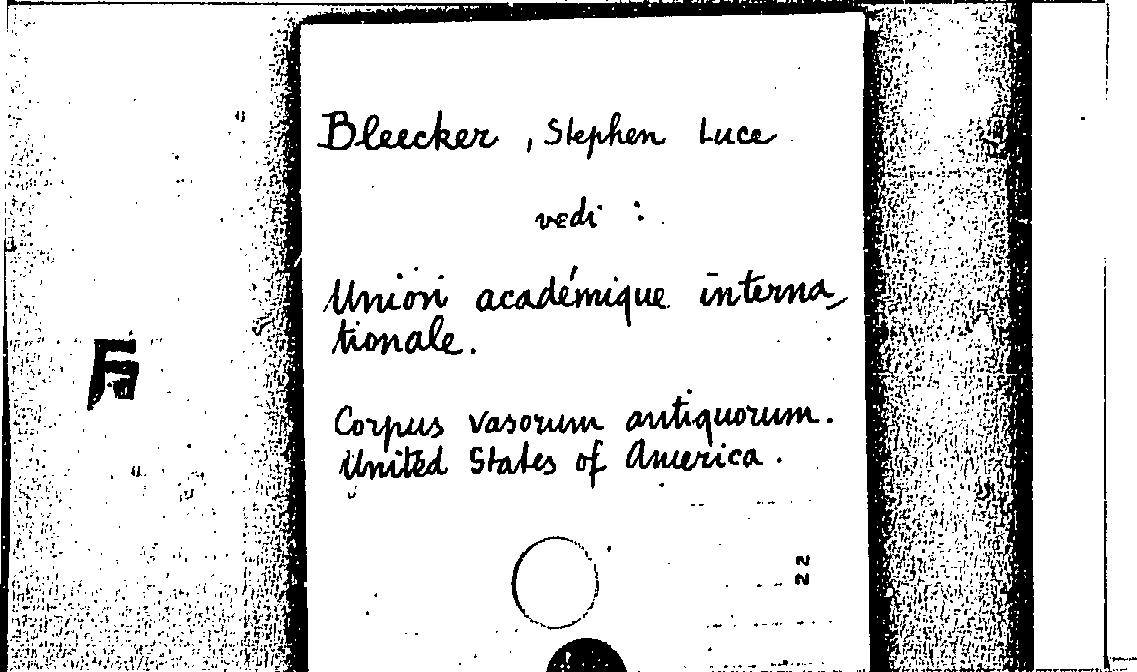 Bleecker, Stephen Luce
vedi :
Union académique interna-
tionale.
Corpus vasorum antiquorum.
United States of America.